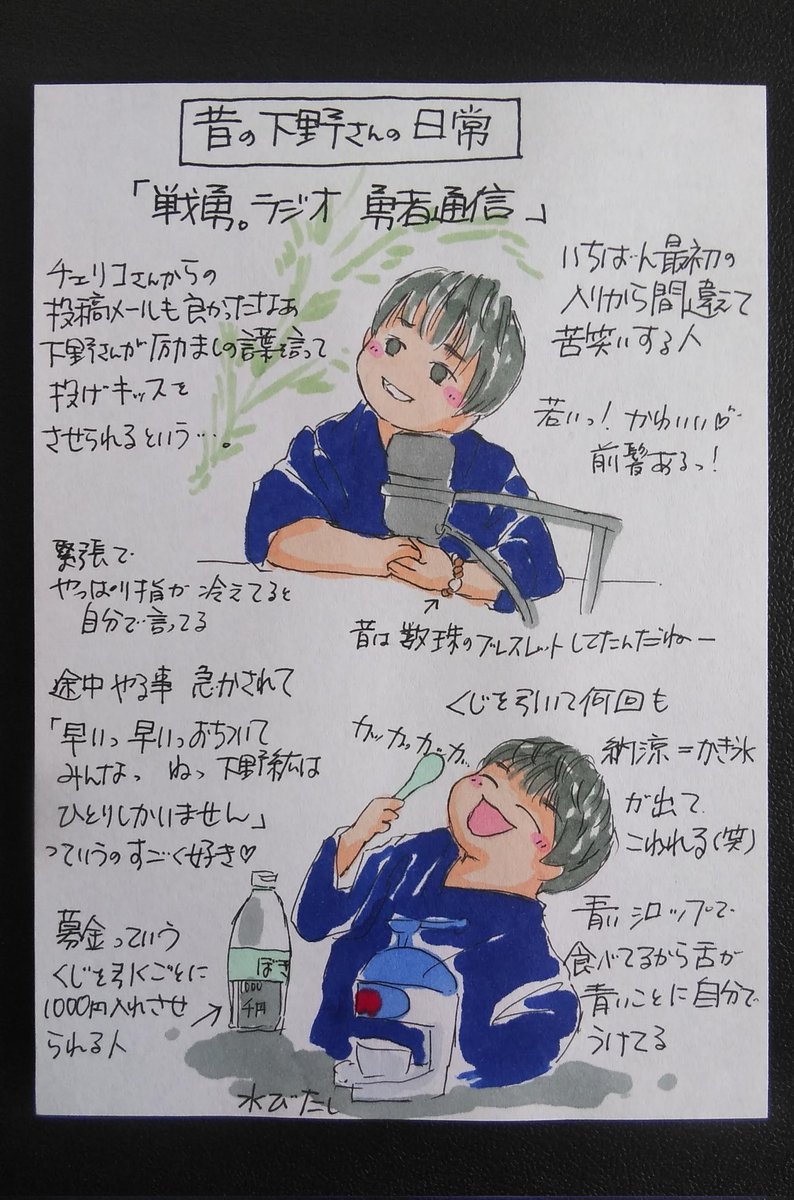 昔の下野さんの日常
「戦勇。ラジオ 勇者通信」
チェリコさんからの
投稿メールも良かったなあ
下野さんが励ましの言葉を言って
投げキッスを
させられるという…。
いちばん最初の
入りから間違えて
苦笑いする人
若いっ！かわいい♡
前髪あるっ！
緊張で
やっぱり指が冷えてると
自分で言ってる
昔は数珠のブレスレットしてたんだねー
途中やる事 急かされて
「早いっ早いっおちついて
みんなっ ねっ 下野紘は
ひとりしかいません」
っていうのすごく好き♡
くじを引いて何回も
納涼＝かき氷
が出て
こわれる(笑)
カッカッカッカッ
募金っていう
くじを引くごとに
1000円入れさせ
られる人
ぼき
1000
千円
青いシロップで
食べてるから舌が
青いことに自分で
うけてる
水びたし